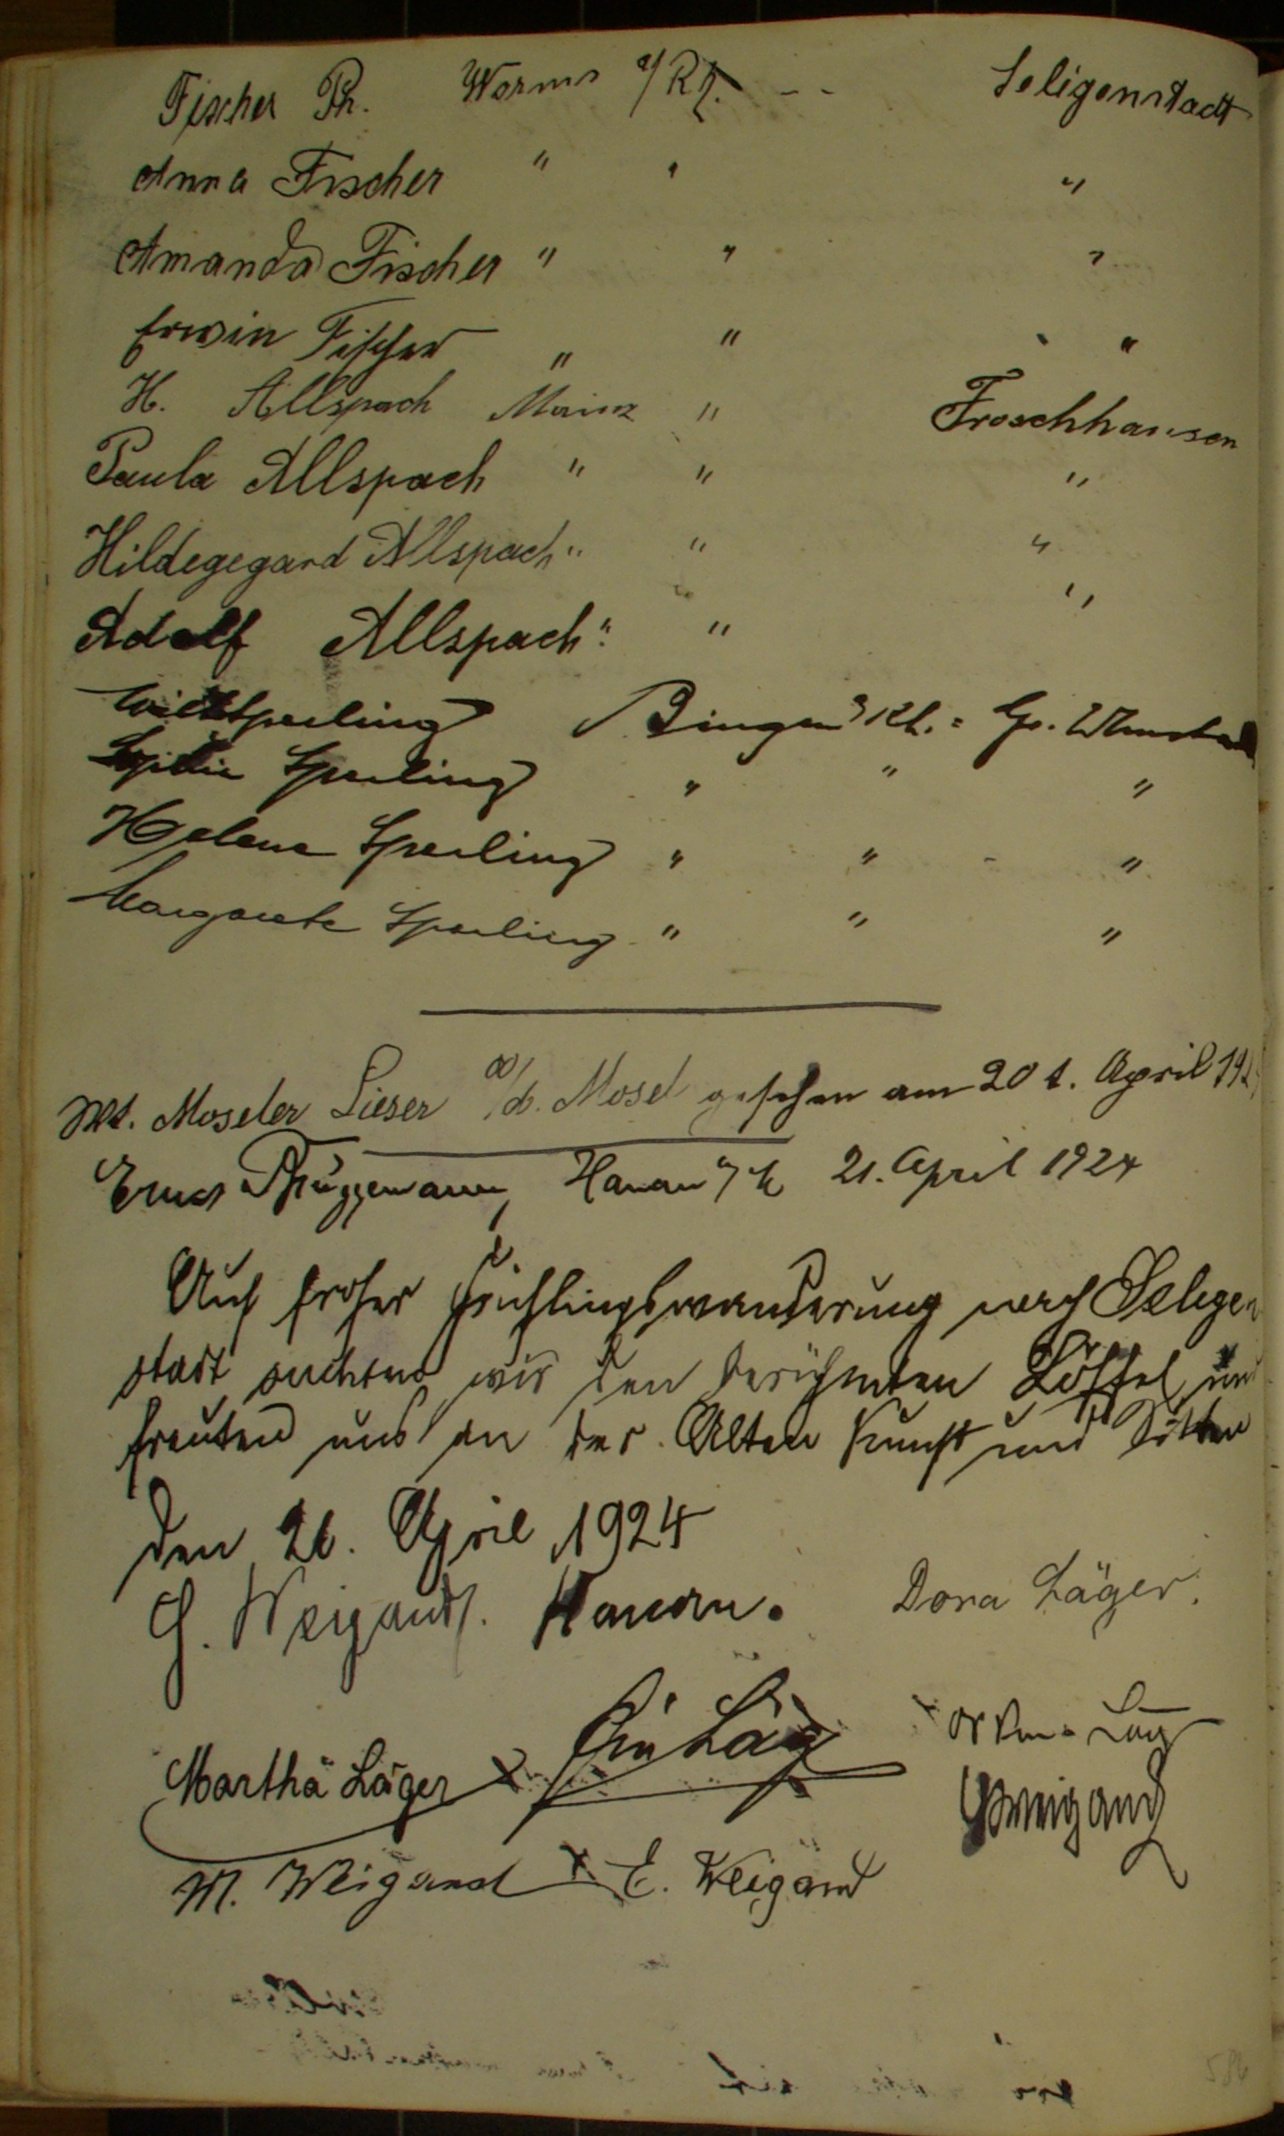 Fischer Ph. Worms a/Rh. - - Seligenstadt
Anna Fischer " " "
Amanda Fischer " " "
Erwin Fischer " " "
H. Allspach Mainz " Froschhausen
Paula Allspach " " "
Hildegegard Allspach " " "
Adolf Allspach " " "
Willi Sperling Bingen a/Rh. = Gr.
Sperling " " "
Helene Sperling " " "
Margarete Sperling " " "
Mt. Moseler Lieser a/d. Mosel gesehen am 20 t. April 192
Ernst Brüggemann, Hanau a/M 21. April 1924
Auf froher Frühlingswanderung nach Seligen
stadt suchten wir den berühmten Löffel und
freuten uns an der Alten Kunst und Sitten
den 21. April 1924
G. Weigand. Hanau. Dora Läger.
Martha Läger
Weigand
M. Weigand E. Weigand
586